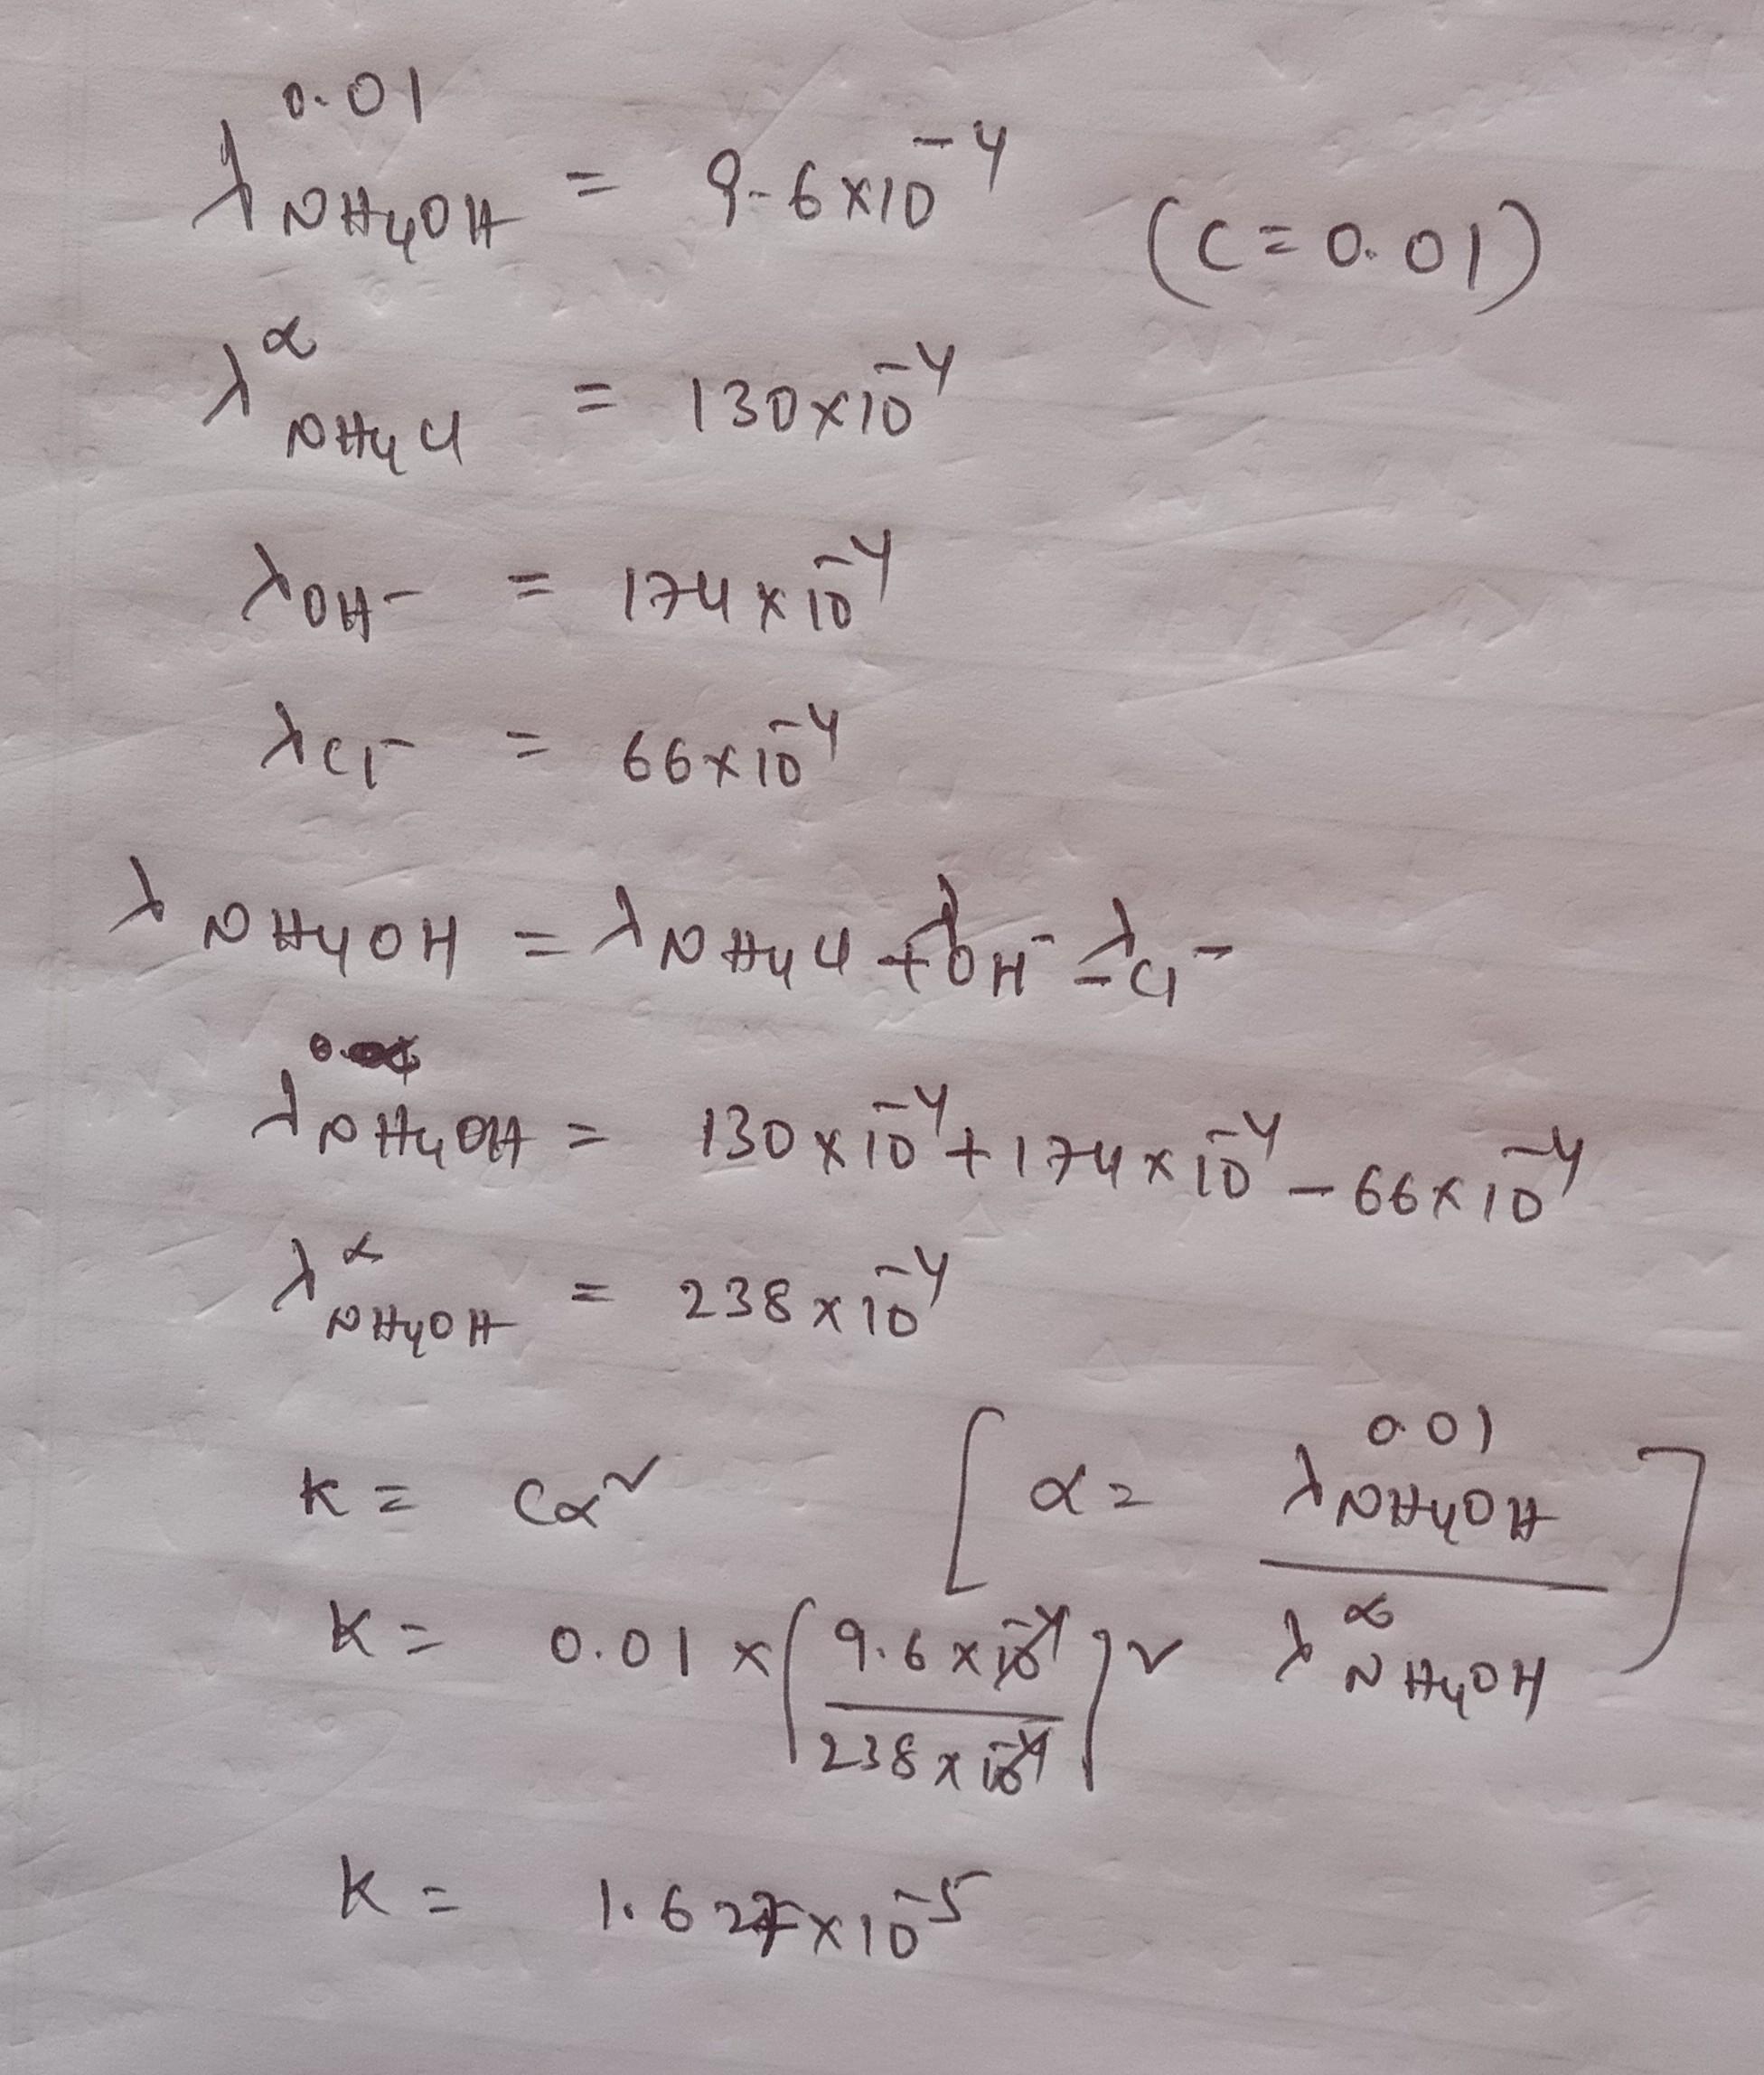 λ^0.01 NH4OH = 9.6×10^-4 (C=0.01)
λ^∝ NH4Cl = 130×10^-4
λOH- = 174×10^-4
λCl- = 66×10^-4
λNH4OH = λNH4Cl + λOH- - λCl-
λNH4OH = 130×10^-4 + 174×10^-4 - 66×10^-4
λ^∝ NH4OH = 238×10^-4
K = Cα^2 [α = λ^0.01 NH4OH / λ^∝ NH4OH]
K = 0.01 × (9.6×10^-4 / 238×10^-4)^2
K = 1.627×10^-5